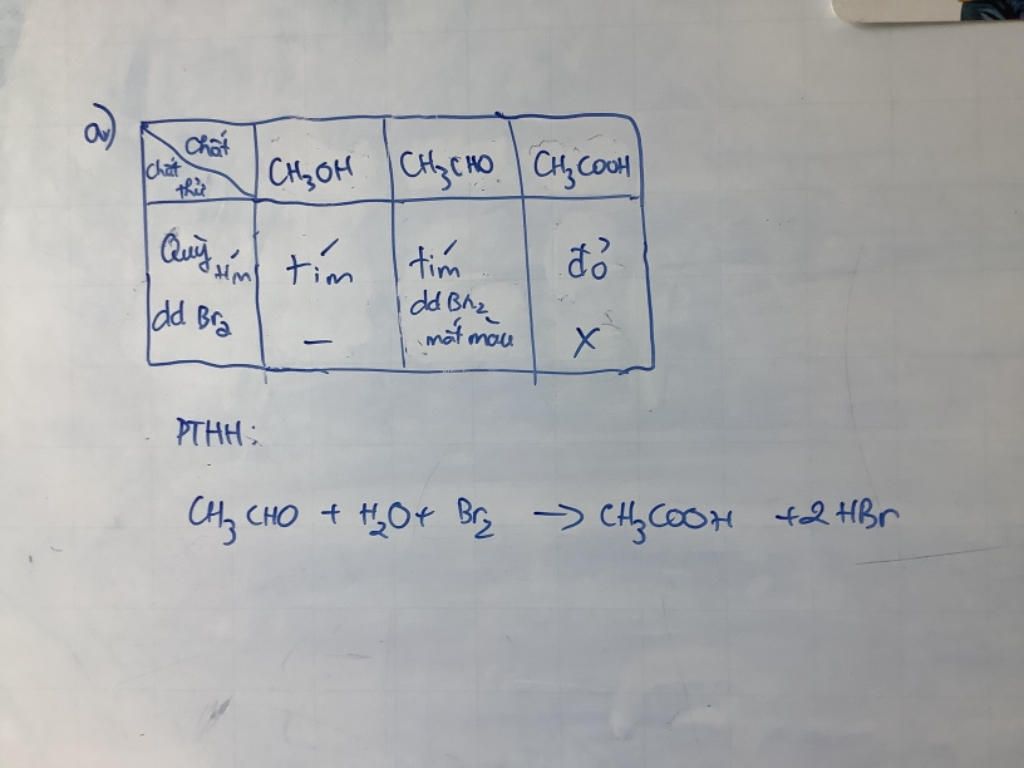 a)
Chất
Chất thử
CH₃OH
CH₃CHO
CH₃COOH
Quỳ tím
tím
tím
đỏ
dd Br₂
–
dd Br₂ mất màu
X
PTHH:
CH₃CHO + H₂O + Br₂ → CH₃COOH + 2HBr